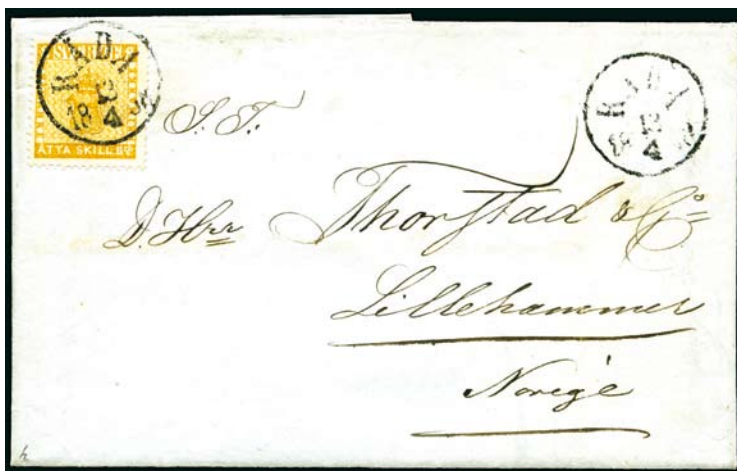 SVERIGE
RADA
18 12
4
ÅTTA SKILL. Bco
RADA
12
4
S. T.
D. Hrr Thorstad & Co
Lillehammer
Norege